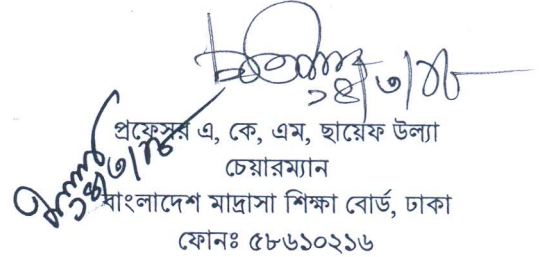 ১৪/৩/১৮
প্রফেসর এ, কে, এম, ছায়েফ উল্যা
চেয়ারম্যান
বাংলাদেশ মাদ্রাসা শিক্ষা বোর্ড, ঢাকা
ফোনঃ ৫৮৬১০২১৬